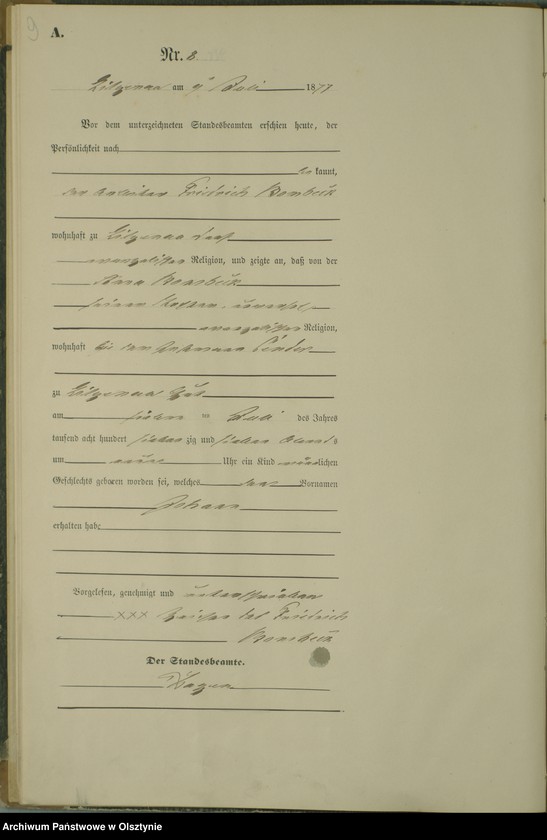 9
A.
Nr. 8.
am 9 Juli 1877
Vor dem unterzeichneten Standesbeamten erschien heute, der
Persönlichkeit nach
be kannt,
der Arbeiter Friedrich
wohnhaft zu
evangelischer Religion, und zeigte an, daß von der
Anna
seiner
evangelischer Religion,
wohnhaft bei dem
zu Gut
am sieben ten Juli des Jahres
tausend acht hundert sieben zig und sieben Abends
um neun Uhr ein Kind männlichen
Geschlechts geboren worden sei, welches den Vornamen
Johann
erhalten habe
Vorgelesen, genehmigt und unterschrieben
XXX Zeichen des Friedrich
Der Standesbeamte.
Archiwum Państwowe w Olsztynie